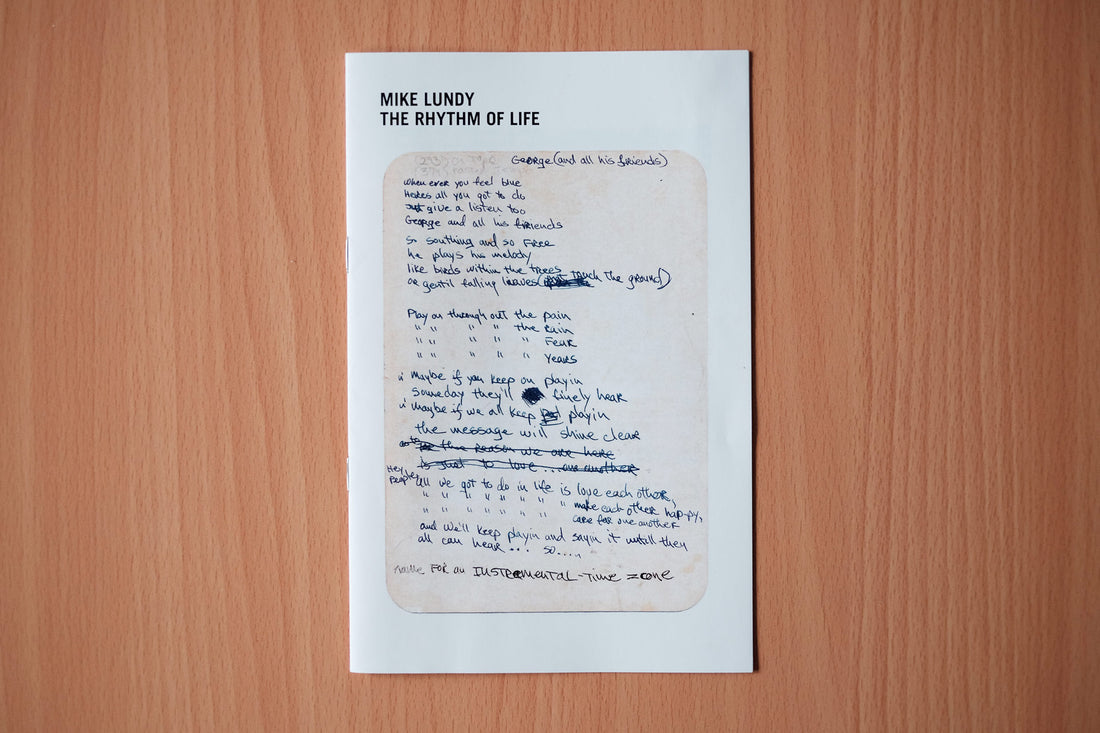 MIKE LUNDY
THE RHYTHM OF LIFE
George (and all his friends)
when ever you feel blue
Heres all you got to do
Just give a listen too
George and all his friends
so southing and so Free
he plays his melody
like birds within the trees
or gentil falling leaves (touch the ground)
Play on through out the pain
" " " " " the rain
" " " " " Fear
" " " " " Years
" maybe if you keep on playin
someday they'll finely hear
" maybe if we all keep playin
the message will shine clear
the reason we are here
is just to love ... one another
Hey people all we got to do in life is love each other,
" " " " " " " " make each other hap-py,
" " " " " " " care for one another
and we'll keep playin and sayin it untill they
all can hear ... so....
FOR an INSTRamenTaL-Time zone